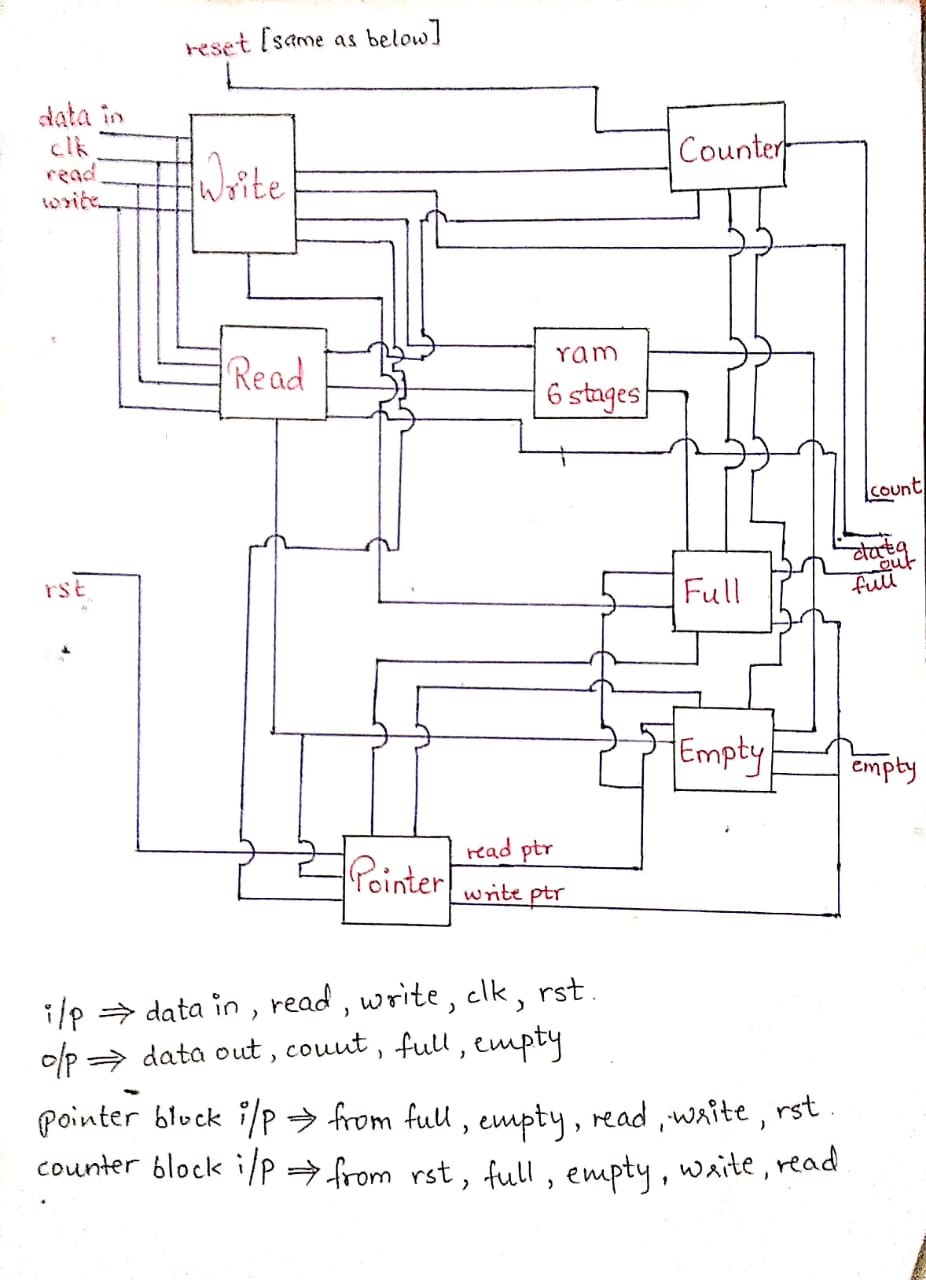 reset [same as below]
data in
clk
read
write
Write
Counter
Read
ram
6 stages
count
data
out
full
rst
Full
Empty
empty
read ptr
Pointer
write ptr
i/p ⇒ data in, read, write, clk, rst.
o/p ⇒ data out, count, full, empty
pointer block i/p ⇒ from full, empty, read, write, rst.
counter block i/p ⇒ from rst, full, empty, write, read